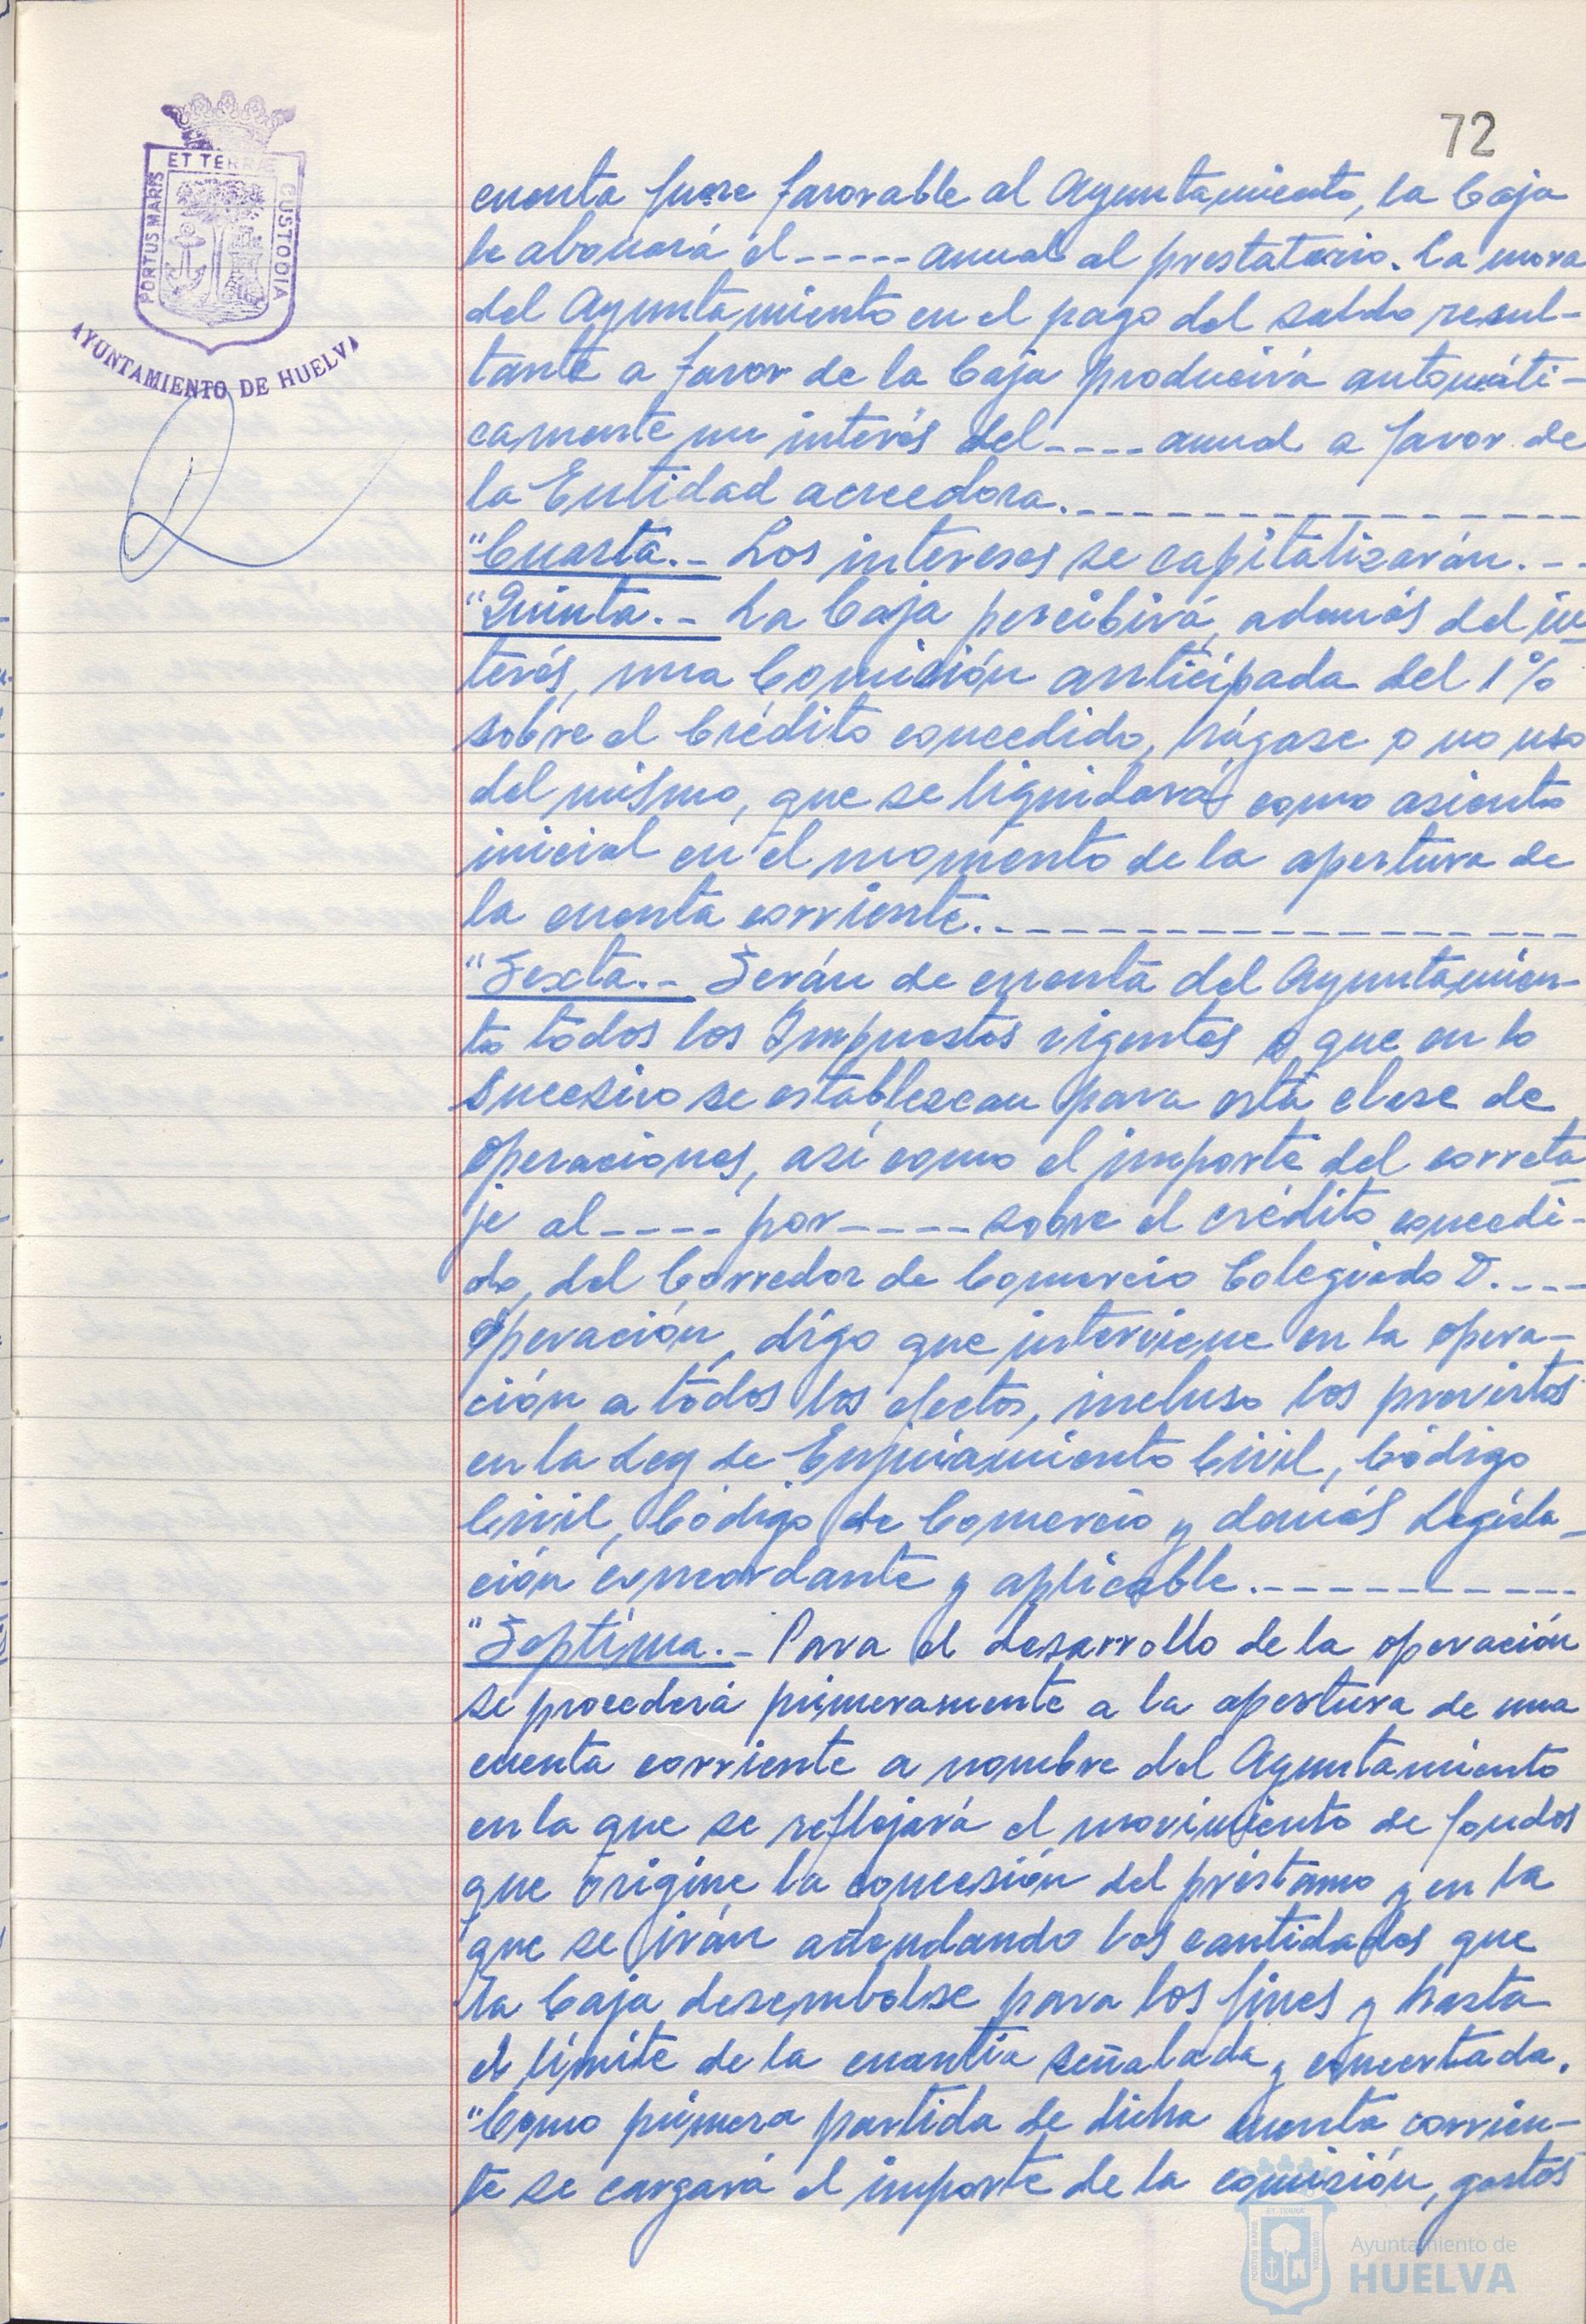 72
ET TERRÆ
PORTUS MARIS
CUSTODIA
AYUNTAMIENTO DE HUELVA
cuenta fuere favorable al Ayuntamiento, la Caja
le abonará el ----- anual al prestatario. La mora
del Ayuntamiento en el pago del saldo resul-
tante a favor de la Caja producirá automáti-
camente un interés del ---- anual a favor de
la Entidad acreedora.
"Cuarta.- Los intereses se capitalizarán.--
"Quinta.- La Caja percibirá, además del in
terés, una Comisión anticipada del 1%
sobre el Crédito concedido, hágase o no uso
del mismo, que se liquidará como asiento
inicial en el momento de la apertura de
la cuenta corriente.
"Sexta.- Serán de cuenta del Ayuntamien-
to todos los Impuestos vigentes o que en lo
sucesivo se establezcan para esta clase de
operaciones, así como el importe del correta
je al ---- por ---- sobre el crédito concedi-
do, del Corredor de Comercio Colegiado D. ---
Operación, digo que interviene en la opera-
ción a todos los efectos, incluso los previstos
en la Ley de Enjuiciamiento Civil, Código
Civil, Código de Comercio y demás Legisla-
ción concordante y aplicable.
"Septima.- Para el desarrollo de la operación
se procederá primeramente a la apertura de una
cuenta corriente a nombre del Ayuntamiento
en la que se reflejará el movimiento de fondos
que origine la concesión del préstamo y en la
que se irán adeudando las cantidades que
la Caja desembolse para los fines y hasta
el límite de la cuantía señalada y concertada.
"Como primera partida de dicha cuenta corrien-
te se cargará el importe de la comisión, gastos
Ayuntamiento de
HUELVA